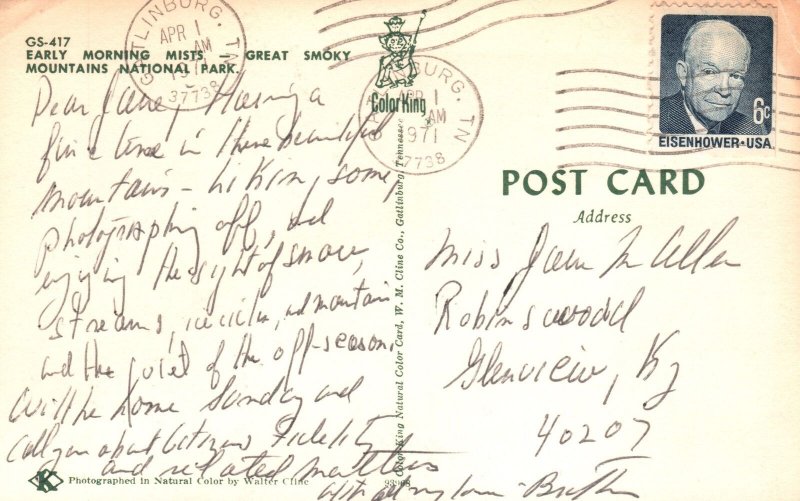 GATLINBURG, TN
APR 1
AM
37738
GS-417
EARLY MORNING MISTS, GREAT SMOKY
MOUNTAINS NATIONAL PARK.
Dear Jane, Having a
fine time in these beautiful
mountains - hiking some,
photographing off, and
enjoying the sight of snow,
streams, icicles, and mountain
and the quiet of the off-season.
Will be home Sunday and
call you about Citizens Fidelity
and related matters
with all my love - 
Photographed in Natural Color by Walter Cline
93968
ColorKing
GATLINBURG, TN
APR 1
AM
1971
37738
Color King Natural Color Card, W. M. Cline Co., Gatlinburg, Tennessee
6c
EISENHOWER·USA
POST CARD
Address
Miss Jane M Allen
Robinswood
Glenview, Ky
40207